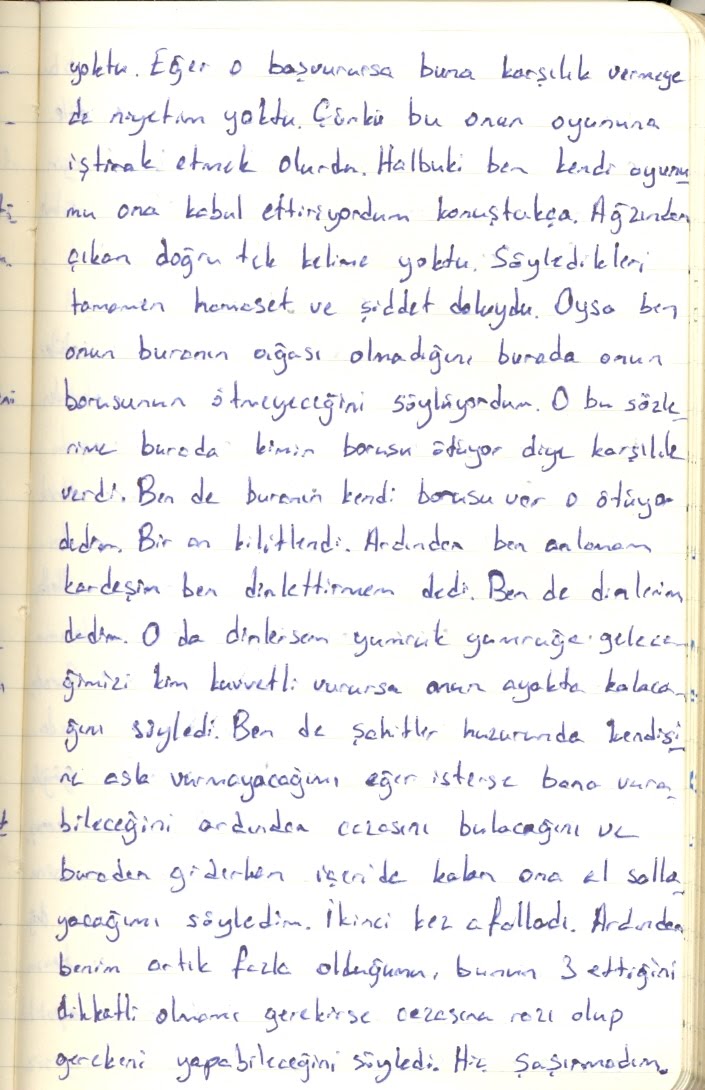 yoktu. Eğer o başvurursa buna karşılık vermeye
de niyetim yoktu. Çünkü bu onun oyununa
iştirak etmek olurdu. Halbuki ben kendi oyunu
mu ona kabul ettiriyordum konuştukça. Ağzından
çıkan doğru tek kelime yoktu. Söyledikleri
tamamen hamaset ve şiddet doluydu. Oysa ben
onun buranın ağası olmadığını burada onun
borusunun ötmeyeceğini söylüyordum. O bu sözle
rime burada kimin borusu ötüyor diye karşılık
verdi. Ben de buranın kendi borusu var o ötüyor
dedim. Bir an kilitlendi. Ardından ben anlamam
kardeşim ben dinlettirmem dedi. Ben de dinlerim
dedim. O da dinlersem yumruk yumruğa gelece
ğimizi kim kuvvetli vurursa onun ayakta kalaca
ğını söyledi. Ben de şahitler huzurunda kendisi
ne asla vurmayacağımı eğer isterse bana vura
bileceğini ardından cezasını bulacağını ve
buradan giderken içeride kalan ona el salla
yacağımı söyledim. İkinci kez afalladı. Ardından
benim artık fazla olduğumu, bunun 3 ettiğini
dikkatli olmamı gerekirse cezasına razı olup
gerekeni yapabileceğini söyledi. Hiç şaşırmadım.